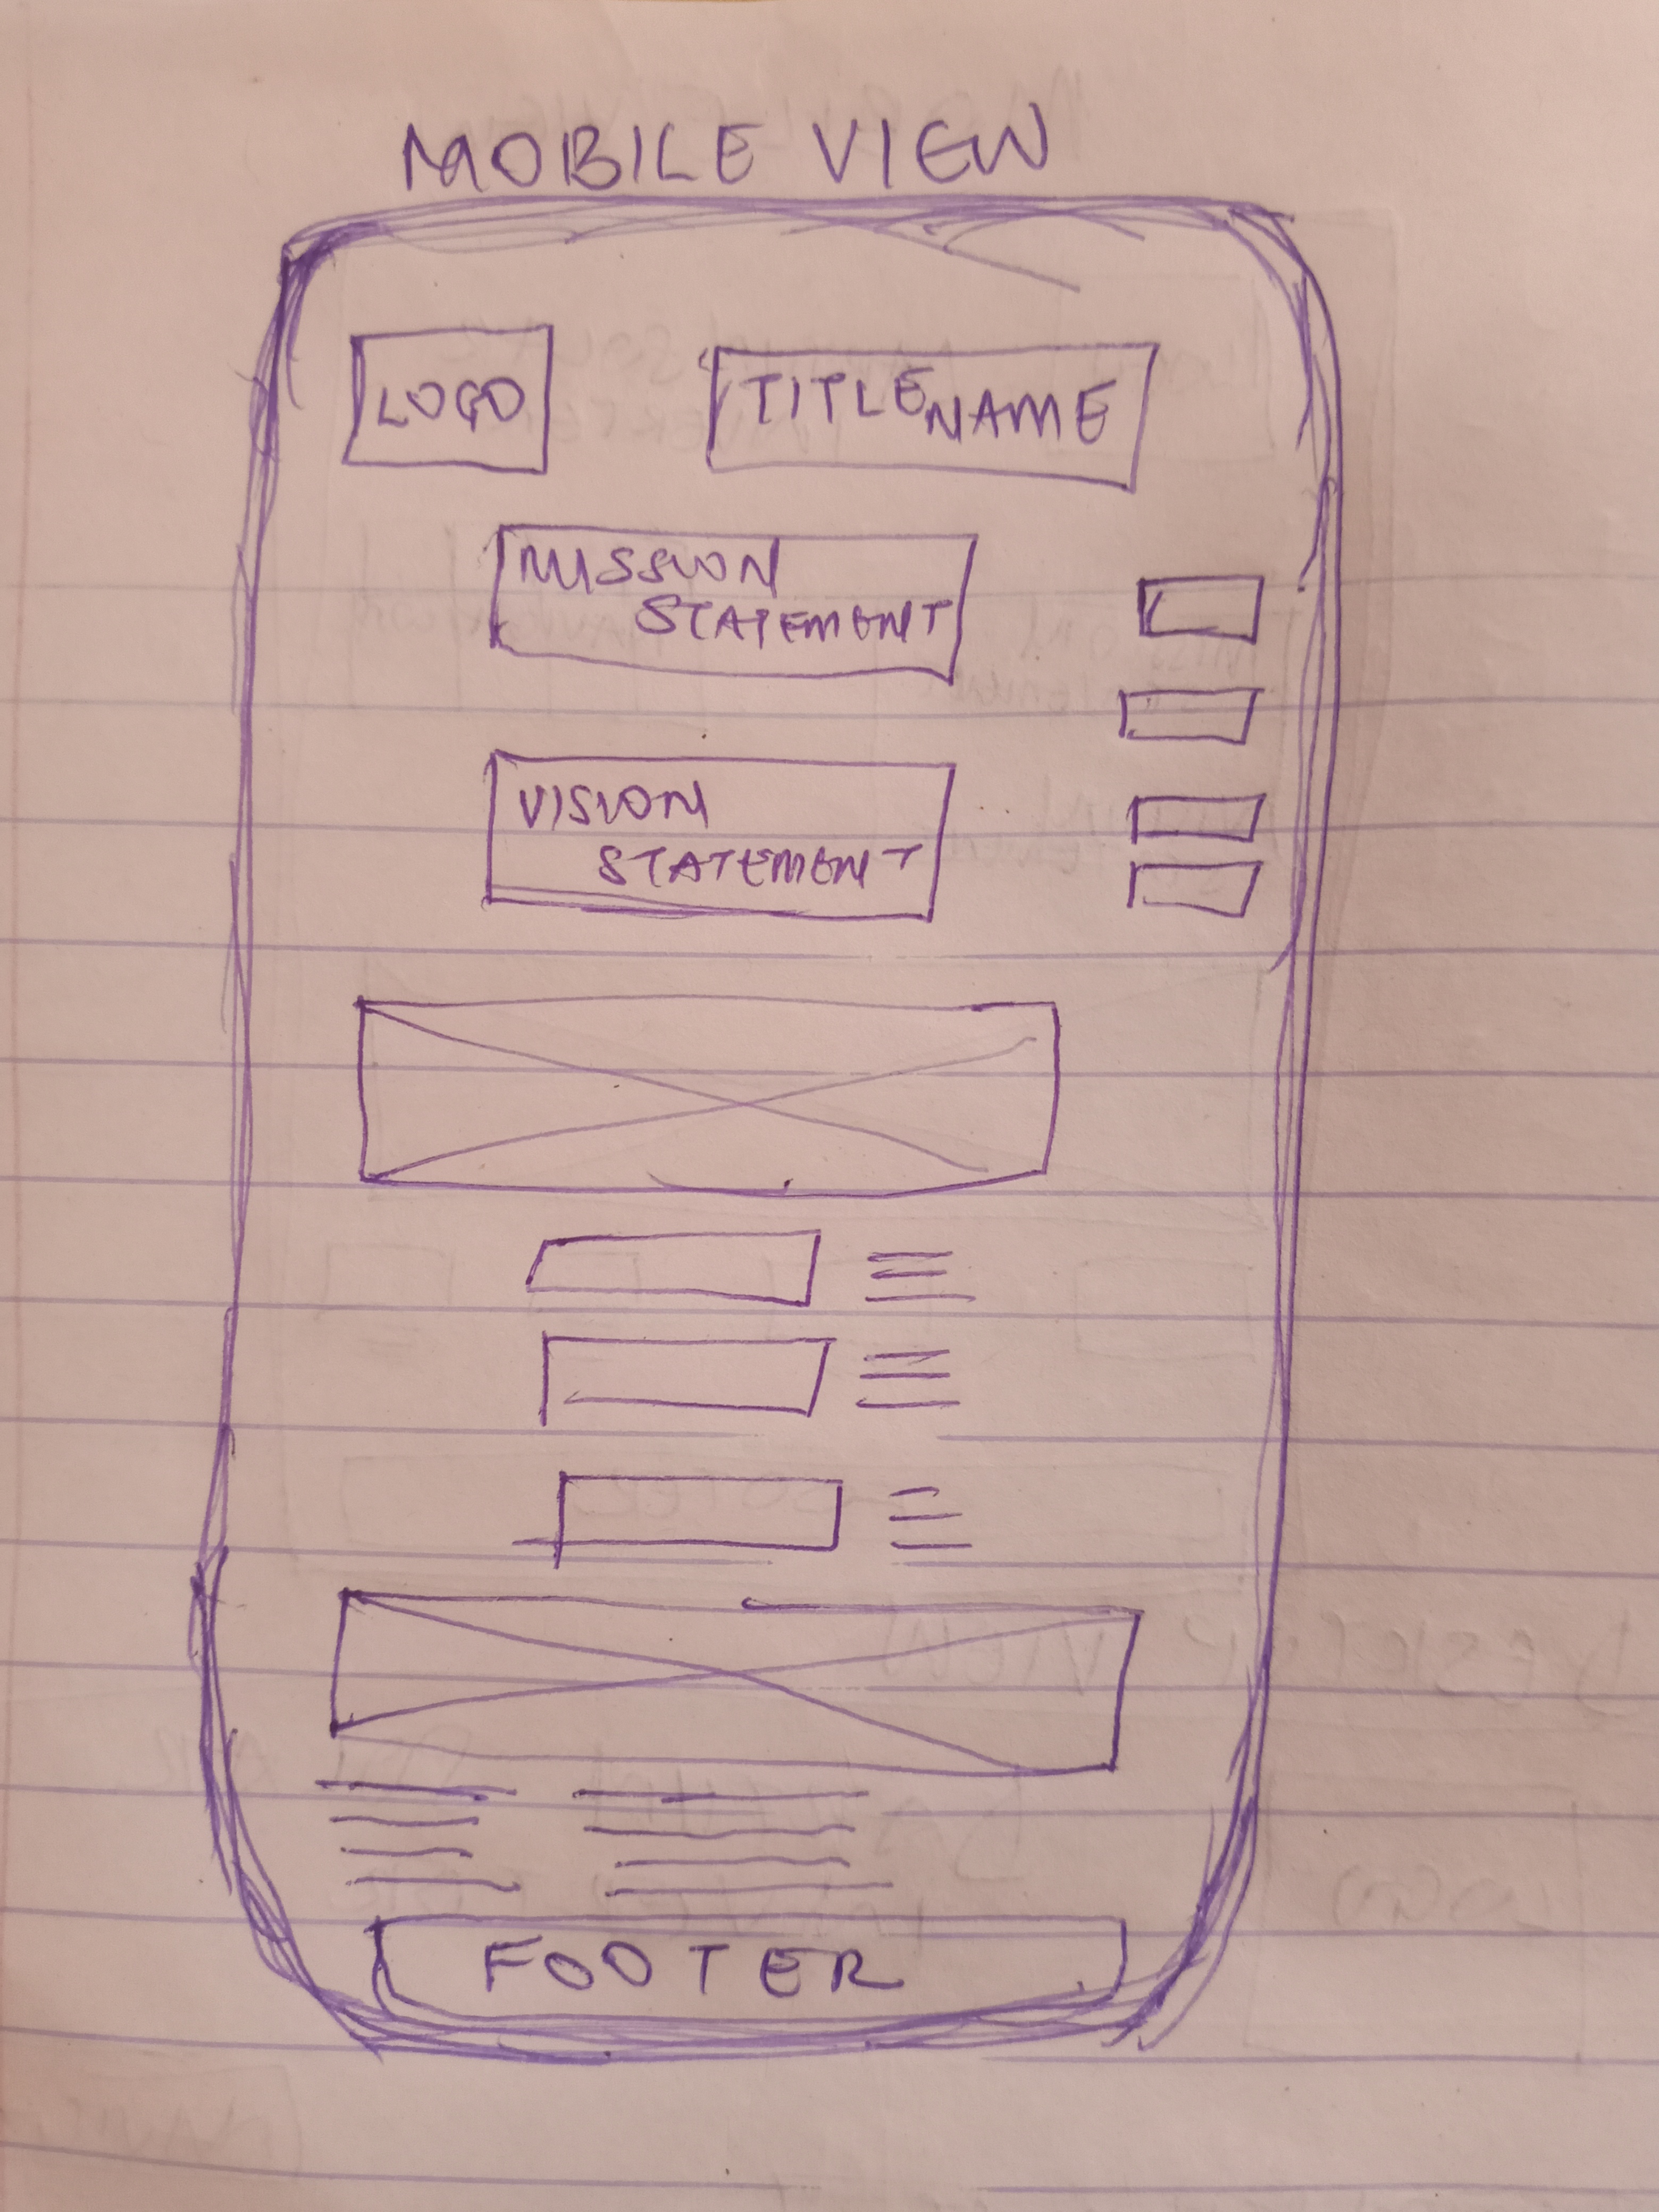 MOBILE VIEW
LOGO
TITLE NAME
MISSION
STATEMENT
VISION
STATEMENT
FOOTER